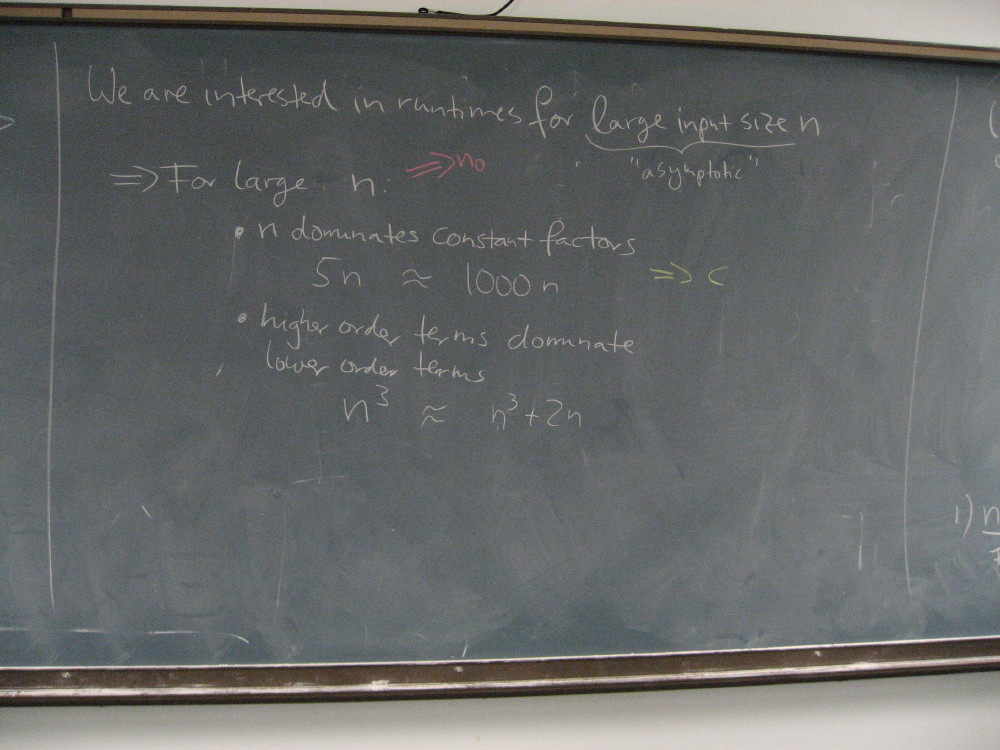 We are interested in runtimes for large input size n
"asymptotic"
⇒ For large n: ⇒ n₀
• n dominates constant factors
5n ≈ 1000n ⇒ c
• higher order terms dominate
lower order terms
n³ ≈ n³+2n
1) n